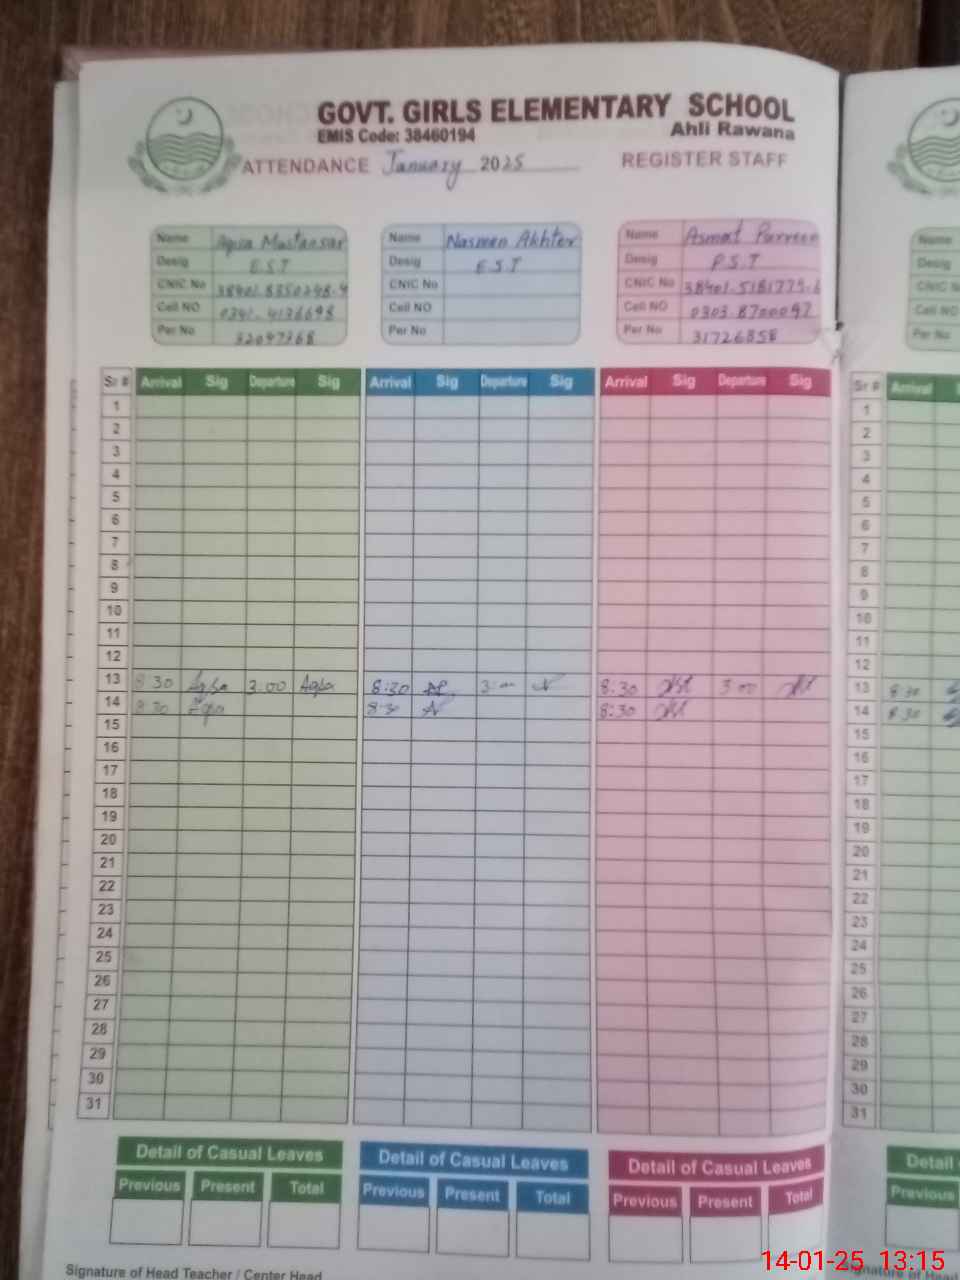 GOVT. GIRLS ELEMENTARY SCHOOL
EMIS Code: 38460194 Ahli Rawana
ATTENDANCE January 2025 REGISTER STAFF
Name Aqsa Mustansar Name Nasmen Akhter Name Asmat Parveen Name
Desig E.S.T Desig E.S.T Desig P.S.T Desig
CNIC No CNIC No CNIC No CNIC
Cell NO 0341.4136698 Cell NO Cell NO 0303.8700097 Cell NO
Per No 32097368 Per No Per No 31726858 Per No
Sr # Arrival Sig Departure Sig Arrival Sig Departure Sig Arrival Sig Departure Sig Sr # Arrival
1 1
2 2
3 3
4 4
5 5
6 6
7 7
8 8
9 9
10 10
11 11
12 12
13 8 30 Aqsa 3:00 Aqsa 8:30 3:00 8:30 3 00 13 8:30
14 8:30 Aqsa 8:30 8:30 14 8:30
15 15
16 16
17 17
18 18
19 19
20 20
21 21
22 22
23 23
24 24
25 25
26 26
27 27
28 28
29 29
30 30
31 31
Detail of Casual Leaves Detail of Casual Leaves Detail of Casual Leaves Detail
Previous Present Total Previous Present Total Previous Present Total Previous
Signature of Head Teacher / Center Head
14-01-25 13:15